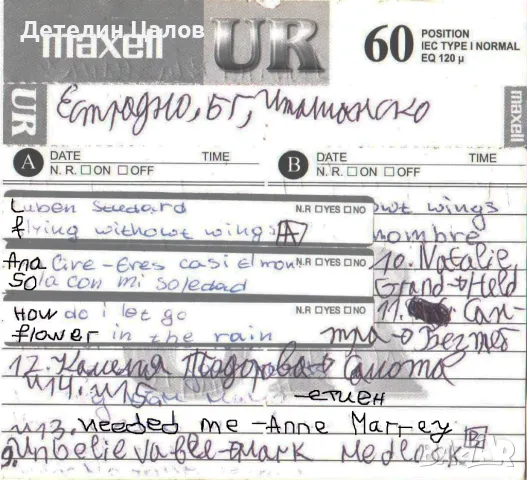 Детелин Цалов
maxell UR 60 POSITION
IEC TYPE I NORMAL
EQ 120 µ
UR Естрадно, БГ, Италианско maxell
A DATE TIME
N. R. ON OFF
B DATE TIME
N. R. ON OFF
Luben Studard N.R YES NO
flying withowt wings A
owt wings
nombre
Ana Cire-Eres casi el mon N.R YES NO
Sola con mi soledad
10. Natalie
Grand → Held
How do i let go N.R YES NO
flower in the rain
11. Сан-
тра → Бегът
12. Камелия Тодорова → Самота
14. 15
етиен
13. needed me - Anne Marrey
9. Unbelievable - Mark Medlock B